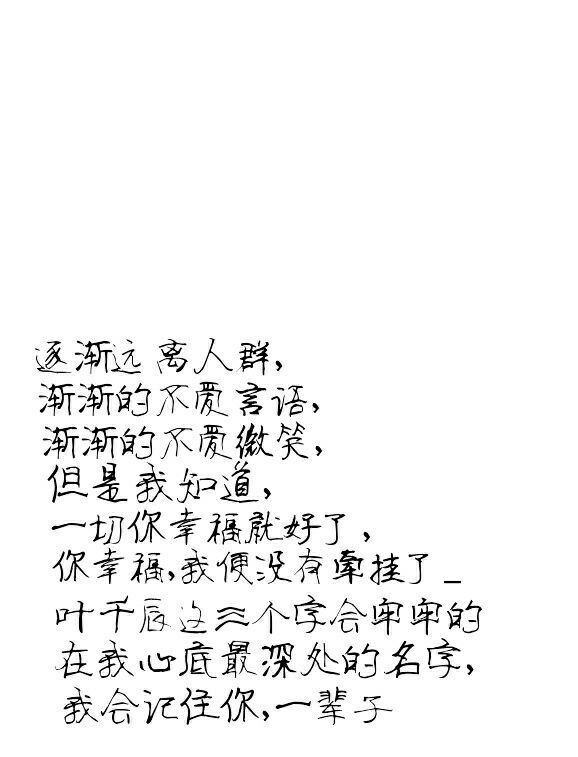 逐渐远离人群,
渐渐的不爱言语,
渐渐的不爱微笑,
但是我知道,
一切你幸福就好了,
你幸福,我便没有牵挂了_
叶千辰这三个字会牢牢的
在我心底最深处的名字,
我会记住你,一辈子